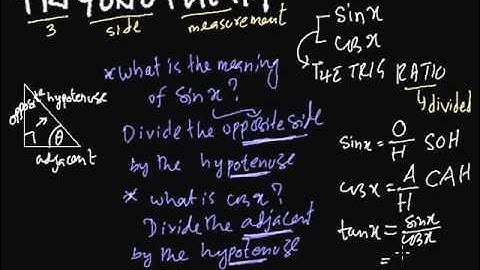 TRIGONOMETRY
3 side measurement
sinx
cosx
THE TRIG RATIO
divided
* what is the meaning
of sinx?
Divide the opposite side
by the hypotenuse
* what is cosx?
Divide the adjacent
by the hypotenuse
opposite
hypotenuse
θ
adjacent
sinx = O/H SOH
cosx = A/H CAH
tanx = sinx/cosx
=